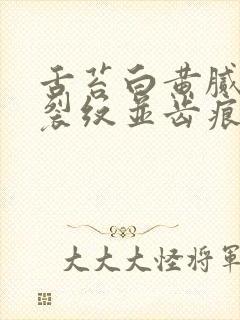 舌苔白黄腻
裂纹并齿痕
大大大怪将軍